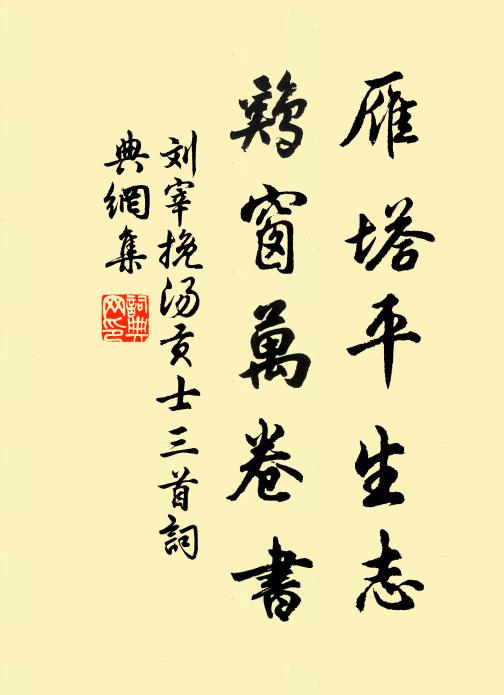 雁塔平生志
鷄窗萬卷書
刘宰挽汤贡士三首詞
典網集
詞典
网印